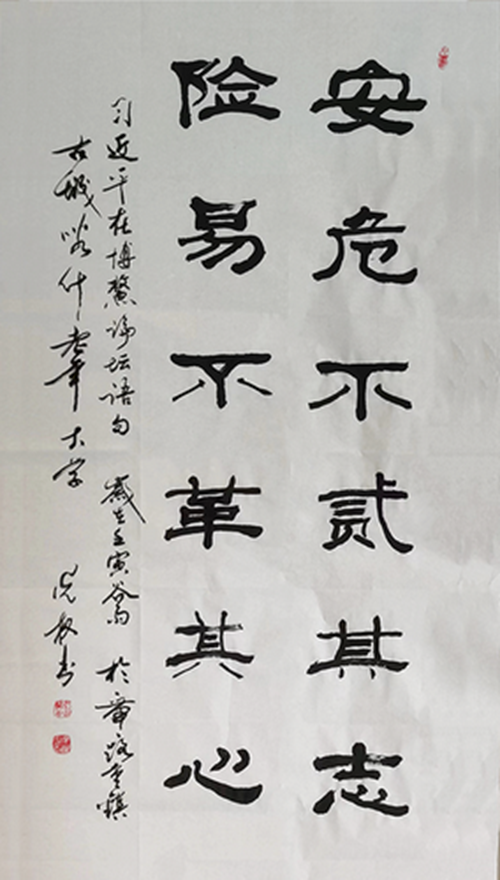 安危不贰其志
险易不革其心
习近平在博鳌论坛语句 岁在壬寅谷雨 於
古城喀什老年大学
书